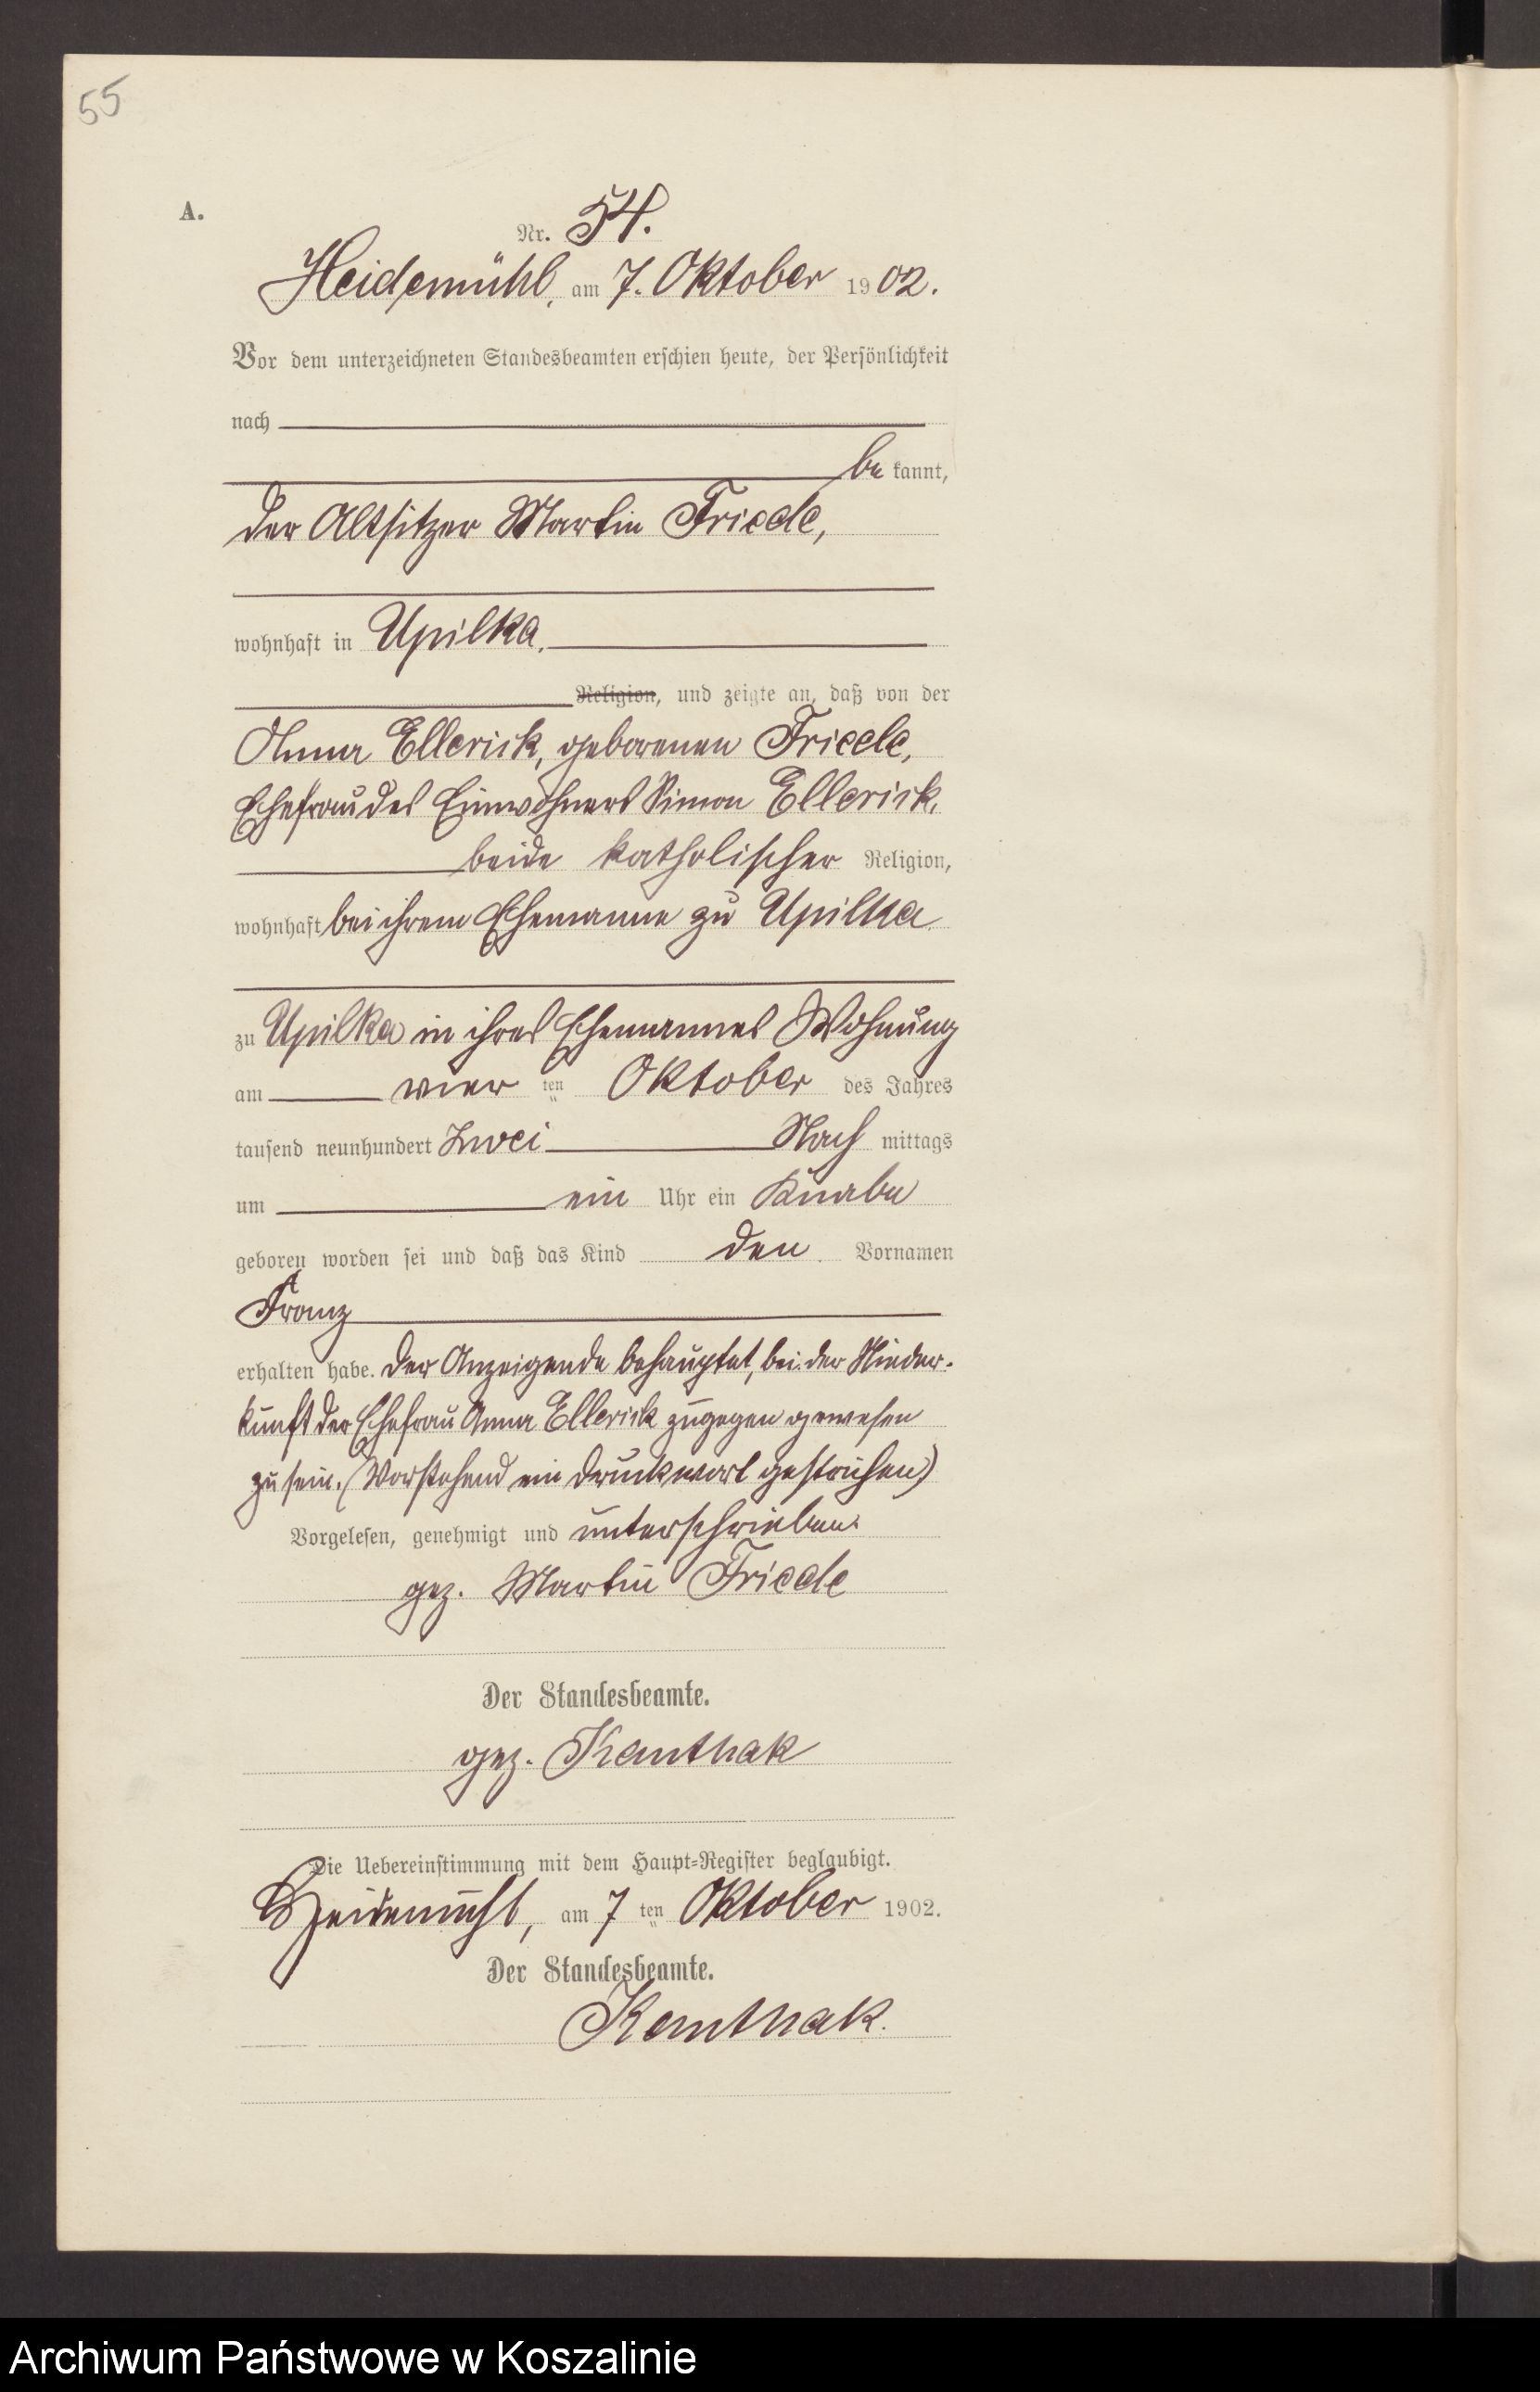 55
A.
Nr. 54.
Heidemühl, am 7. Oktober 1902.
Vor dem unterzeichneten Standesbeamten erschien heute, der Persönlichkeit
nach
be kannt,
der Altsitzer Martin Friede,
wohnhaft in Upilka,
Religion, und zeigte an, daß von der
Anna Ellerick, geborenen Friede,
Ehefrau des Einwohners Simon Ellerick,
beide katholischer Religion,
wohnhaft bei ihrem Ehemanne zu Upilka
zu Upilka in ihres Ehemannes Wohnung
am vier ten Oktober des Jahres
tausend neunhundert zwei Nach mittags
um ein Uhr ein Knabe
geboren worden sei und daß das Kind den Vornamen
Franz
erhalten habe. Der Anzeigende behauptet, bei der Nieder-
kunft der Ehefrau Anna Ellerick zugegen gewesen
zu sein. (Vorstehend ein Druckwort gestrichen)
Vorgelesen, genehmigt und unterschrieben.
gez. Martin Friede
Der Standesbeamte.
gez. Kanthak
Die Uebereinstimmung mit dem Haupt-Register beglaubigt.
Heidemühl, am 7 ten Oktober 1902.
Der Standesbeamte.
Kanthak.
Archiwum Państwowe w Koszalinie